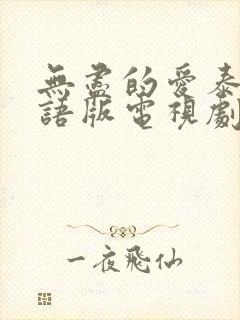 無盡的愛泰
語版電視劇
一夜飛仙